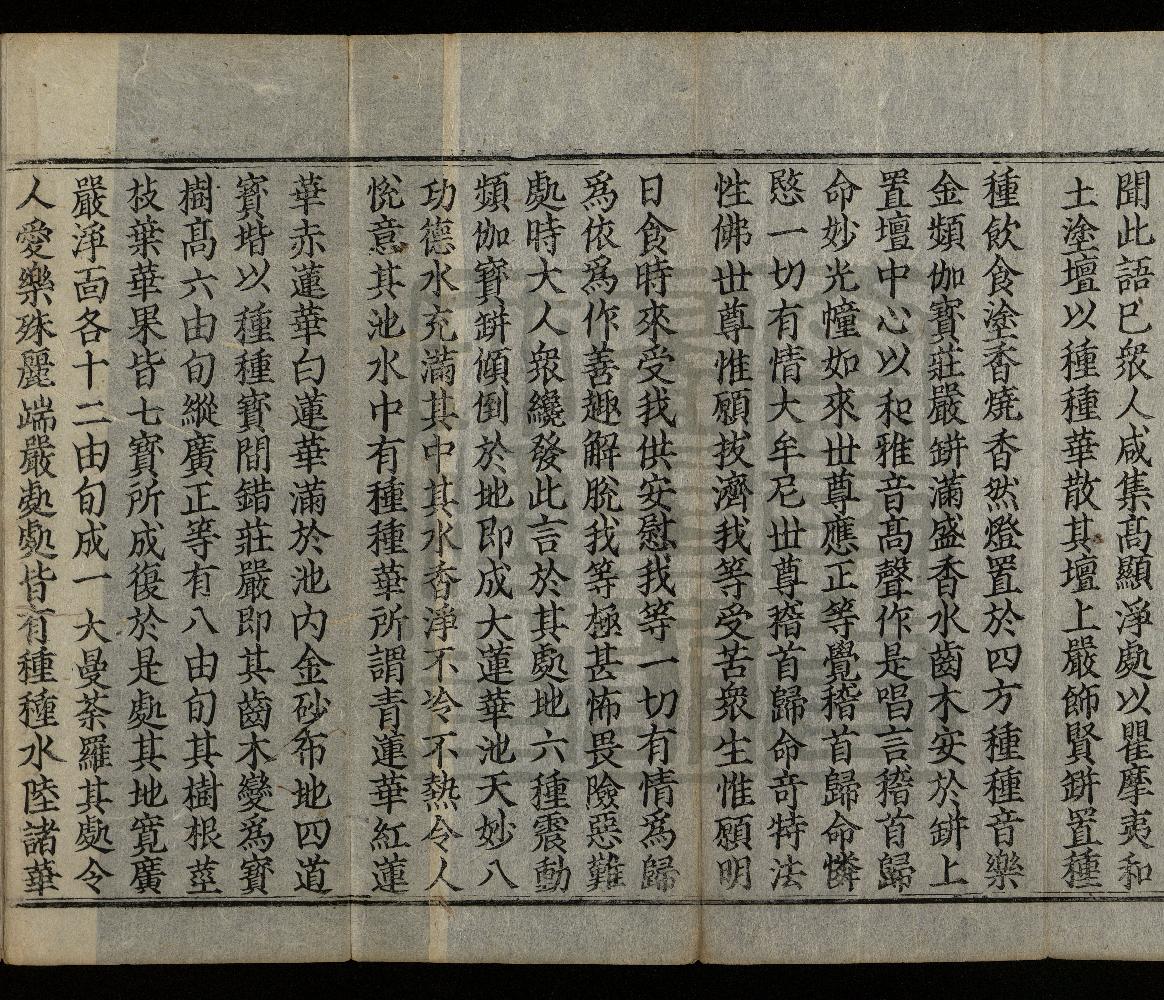 聞此語已衆人咸集髙顯淨處以瞿摩夷和
土塗壇以種種華散其壇上嚴飾賢缾置種
種飲食塗香燒香然燈置於四方種種音樂
金頻伽寳莊嚴缾滿盛香水齒木安於缾上
置壇中心以和雅音髙聲作是唱言稽首歸
命妙光幢如來世尊應正等覺稽首歸命憐
愍一切有情大牟尼世尊稽首歸命竒特法
性佛世尊惟願拔濟我等受苦衆生惟願明
日食時來受我供安慰我等一切有情爲歸
爲依爲作善趣解脫我等極甚怖畏險惡難
處時大人衆纔發此言於其處地六種震動
頻伽寳缾傾倒於地即成大蓮華池天妙八
功德水充滿其中其水香淨不冷不熱令人
悅意其池水中有種種華所謂青蓮華紅蓮
華赤蓮華白蓮華滿於池内金砂布地四道
寳堦以種種寳間錯莊嚴即其齒木變爲寳
樹髙六由旬縱廣正等有八由旬其樹根莖
枝葉華果皆七寳所成復於是處其地寛廣
嚴淨面各十二由旬成一大曼荼羅其處令
人愛樂殊麗端嚴處處皆有種種水陸諸華